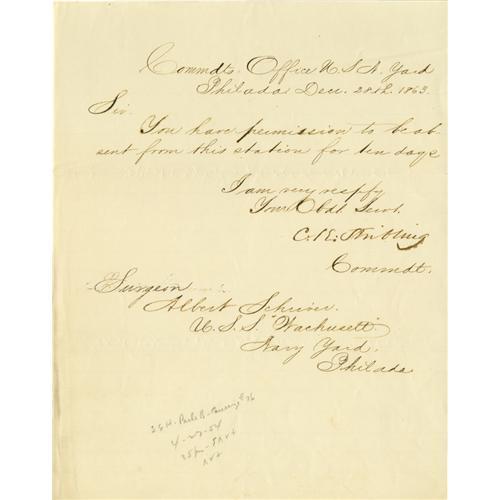 Commdts. Office U.S.N. Yard
Philada Dec. 28th. 1863.
Sir.
You have permission to be ab-
sent from this station for ten days
I am very respfy
Your Obdt Servt.
C. K. Stribling
Commdt.
Surgeon
Albert Schriver
U.S.S. "Wachusett"
Navy Yard.
Philada
4-23-54